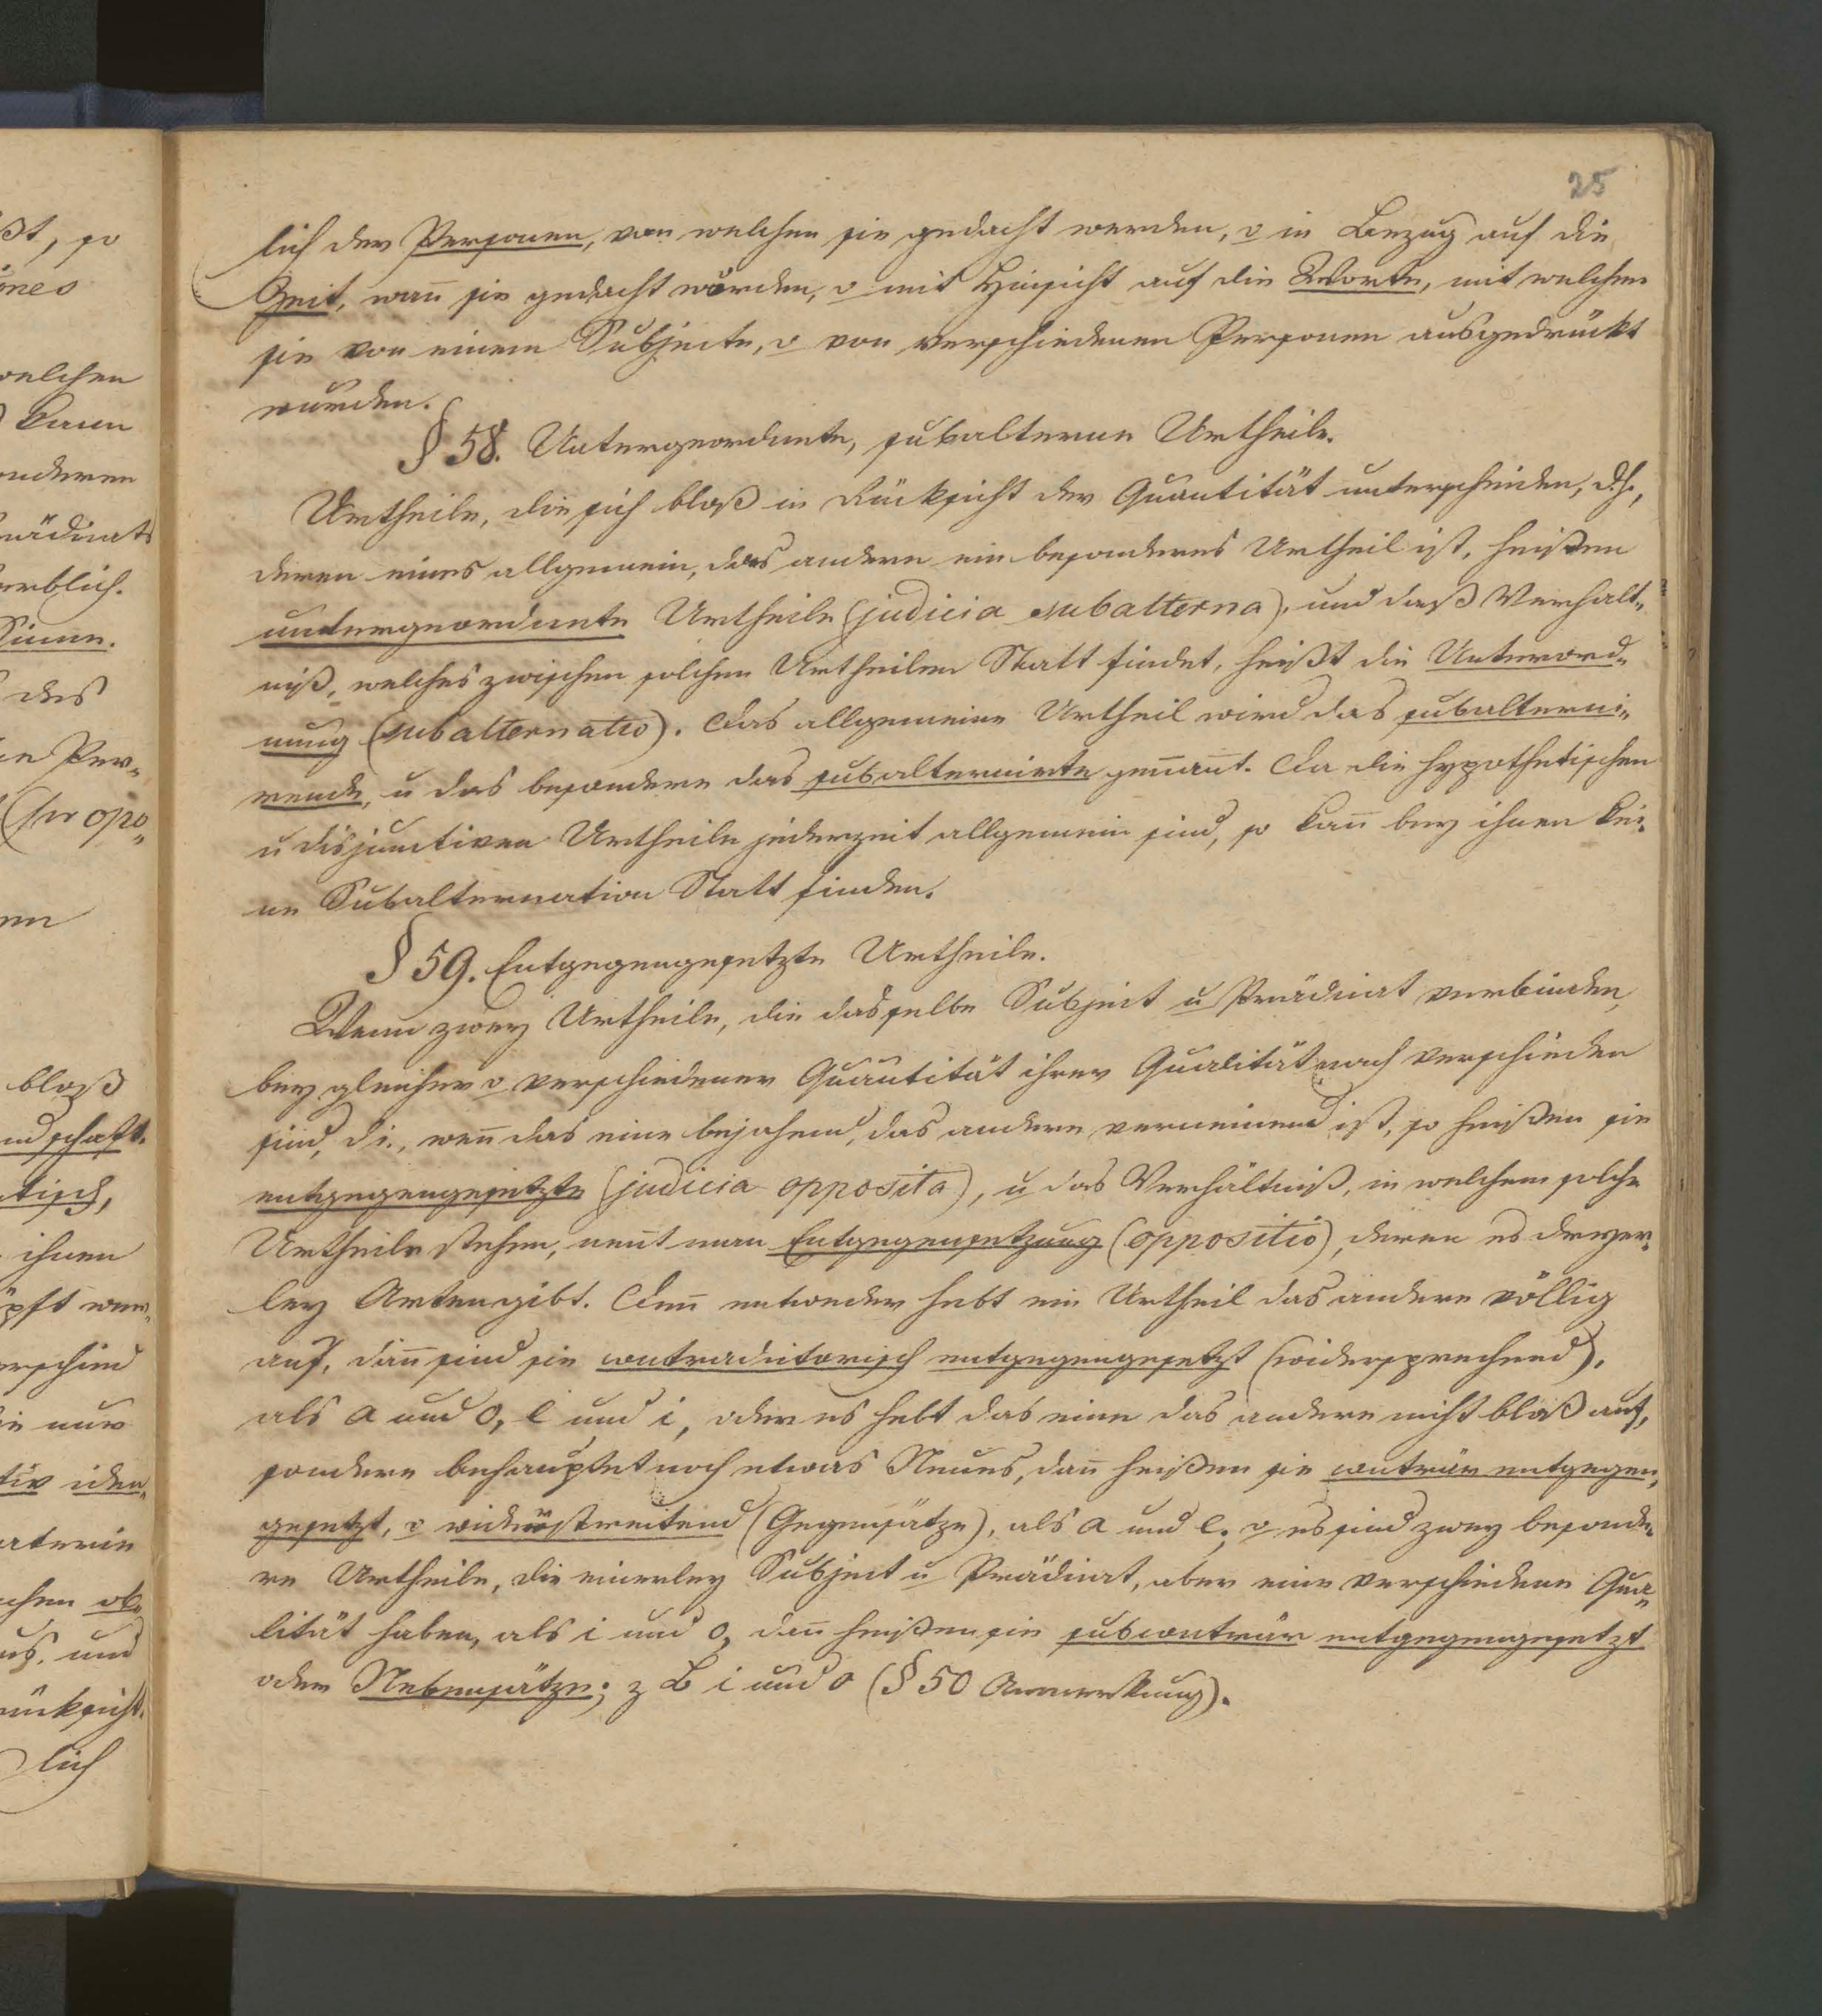 25
lich der Personen, von welchen sie gedacht werden, o in Bezug auf die
Zeit, wañ sie gedacht wurden, o mit Hinsicht auf die Worte, mit welchen
sie von einem Subjecte, o von verschiedenen Personen ausgedrückt
wurden.
§ 58. Untergeordnete, subalterne Urtheile.
Urtheile, die sich bloß in Rücksicht der Quantität unterscheiden, d.h.,
deren eines allgemein, das andere ein besonderes Urtheil ist, heißen
untergeordnete Urtheile (judicia subalterna), und daß Verhält„
niß, welches zwischen solchen Urtheilen Statt findet, heißt die Unterord„
nung (subalternatio). Das allgemeine Urtheil wird das subalterni„
rende, u das besondere das subalternirte genañt. Da die hypothetischen
u disjunctiven Urtheile jederzeit allgemein sind, so kañ bey ihnen kei„
ne Subalternation Statt finden.
§ 59. Entgegengesetzte Urtheile.
Wenn zwey Urtheile, die dasselbe Subject u Prädicat verbinden,
bey gleicher o verschiedener Quantität ihrer Qualität nach verschieden
sind, d.i., weñ das eine bejahend, das andere verneinend ist, so heißen sie
entgegengesetzte (judicia opposita), u das Verhältniß, in welchem solche
Urtheile stehen, neñt man Entgegensetzung (oppositio), deren es dreyer„
ley Arten gibt. Deñ entweder hebt ein Urtheil das andere völlig
auf, dañ sind sie contradictorisch entgegengesetzt (widersprechend),
als a und o, e und i, oder es hebt das eine das andere nicht bloß auf,
sondern behauptet noch etwas Neues, dañ heißen sie conträr entgegen„
gesetzt, o widerstreitend (Gegensätze), als a und e; o es sind zwey besonde„
re Urtheile, die einerley Subject u Prädicat, aber eine verschiedene Qua„
lität haben, als i und o, dañ heißen sie subconträr entgegengesetzt
oder Nebensätze; z B i und o (§ 50 Anmerkung).